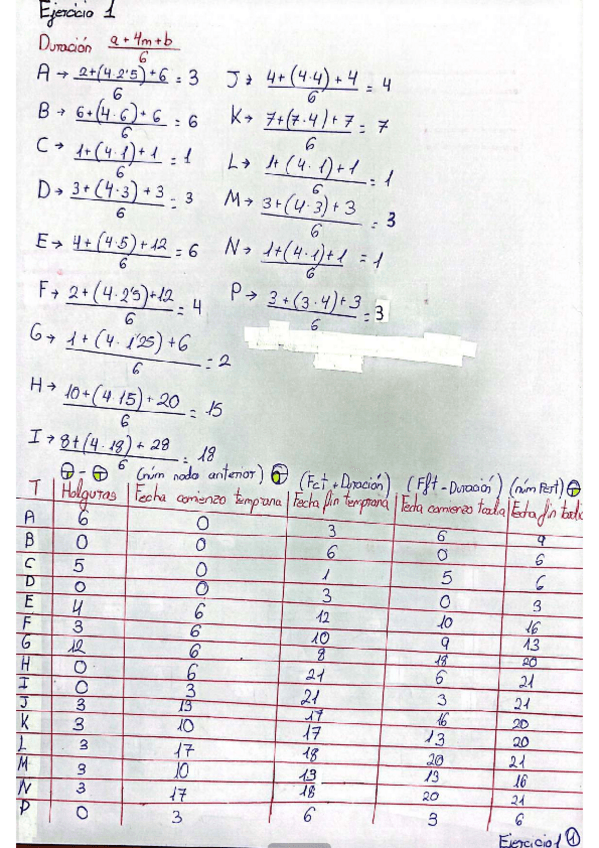 Ejercicio 1
Duración a+4m+b / 6
A → 2+(4·2'5)+6 / 6 = 3
B → 6+(4·6)+6 / 6 = 6
C → 1+(4·1)+1 / 6 = 1
D → 3+(4·3)+3 / 6 = 3
E → 4+(4·5)+12 / 6 = 6
F → 2+(4·2'5)+12 / 6 = 4
G → 1+(4·1'25)+6 / 6 = 2
H → 10+(4·15)+20 / 6 = 15
I → 8+(4·18)+28 / 6 = 18
J → 4+(4·4)+4 / 6 = 4
K → 7+(7·4)+7 / 6 = 7
L → 1+(4·1)+1 / 6 = 1
M → 3+(4·3)+3 / 6 = 3
N → 1+(4·1)+1 / 6 = 1
P → 3+(3·4)+3 / 6 = 3
(núm nodo anterior) (Fct + Duración) (Fft - Duración) (núm Pert)
T Holguras Fecha comienzo temprana Fecha fin temprana Fecha comienzo tardía Fecha fin tardía
A 6 0 3 6 9
B 0 0 6 0 6
C 5 0 1 5 6
D 0 0 3 0 3
E 4 6 12 10 16
F 3 6 10 9 13
G 12 6 8 18 20
H 0 6 21 6 21
I 0 3 21 3 21
J 3 13 17 16 20
K 3 10 17 13 20
L 3 17 18 20 21
M 3 10 13 13 16
N 3 17 18 20 21
P 0 3 6 3 6
Ejercicio 1 1